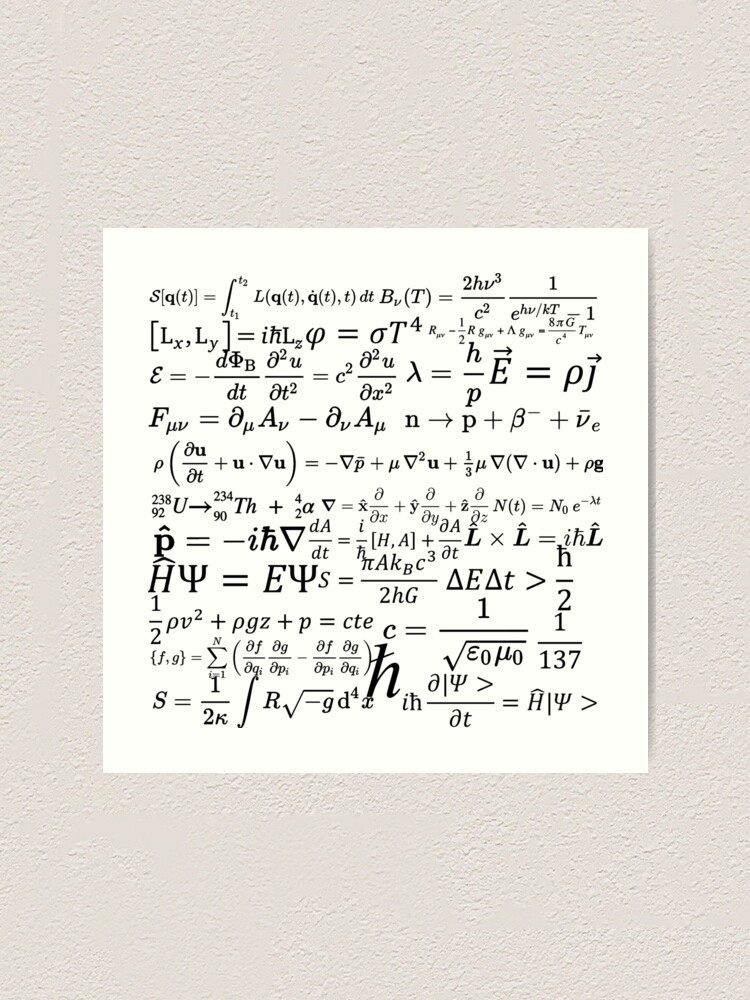 𝒮[𝐪(t)] = ∫_{t₁}^{t₂} L(𝐪(t), 𝐪̇(t), t) dt B_ν(T) = \frac{2hν³}{c²} \frac{1}{e^{hν/kT} − 1}
[L_x, L_y] = iħL_z φ = σT⁴ R_{μν} − \frac{1}{2}R g_{μν} + Λ g_{μν} = \frac{8πG}{c⁴} T_{μν}
ℰ = −\frac{dΦ_B}{dt} \frac{∂²u}{∂t²} = c² \frac{∂²u}{∂x²} λ = \frac{h}{p} \vec{E} = ρ\vec{j}
F_{μν} = ∂_μ A_ν − ∂_ν A_μ n → p + β⁻ + ν̄_e
ρ(\frac{∂𝐮}{∂t} + 𝐮 · ∇𝐮) = −∇p̄ + μ ∇²𝐮 + \frac{1}{3} μ ∇(∇ · 𝐮) + ρ𝐠
^{238}_{92}U → ^{234}_{90}Th + ^{4}_{2}α ∇ = x̂\frac{∂}{∂x} + ŷ\frac{∂}{∂y} + ẑ\frac{∂}{∂z} N(t) = N₀ e^{−λt}
𝐩̂ = −iħ∇ \frac{dA}{dt} = \frac{i}{ħ}[H, A] + \frac{∂A}{∂t} 𝑳̂ × 𝑳̂ = iħ𝑳̂
ĤΨ = EΨ S = \frac{πAk_Bc³}{2hG} ΔEΔt > \frac{ħ}{2}
\frac{1}{2}ρv² + ρgz + p = cte c = \frac{1}{\sqrt{ε₀μ₀}} \frac{1}{137}
{f, g} = ∑_{i=1}^{N} (\frac{∂f}{∂q_i} \frac{∂g}{∂p_i} − \frac{∂f}{∂p_i} \frac{∂g}{∂q_i}) ħ
S = \frac{1}{2κ} ∫ R\sqrt{−g} d⁴x iħ\frac{∂|Ψ >}{∂t} = Ĥ|Ψ >